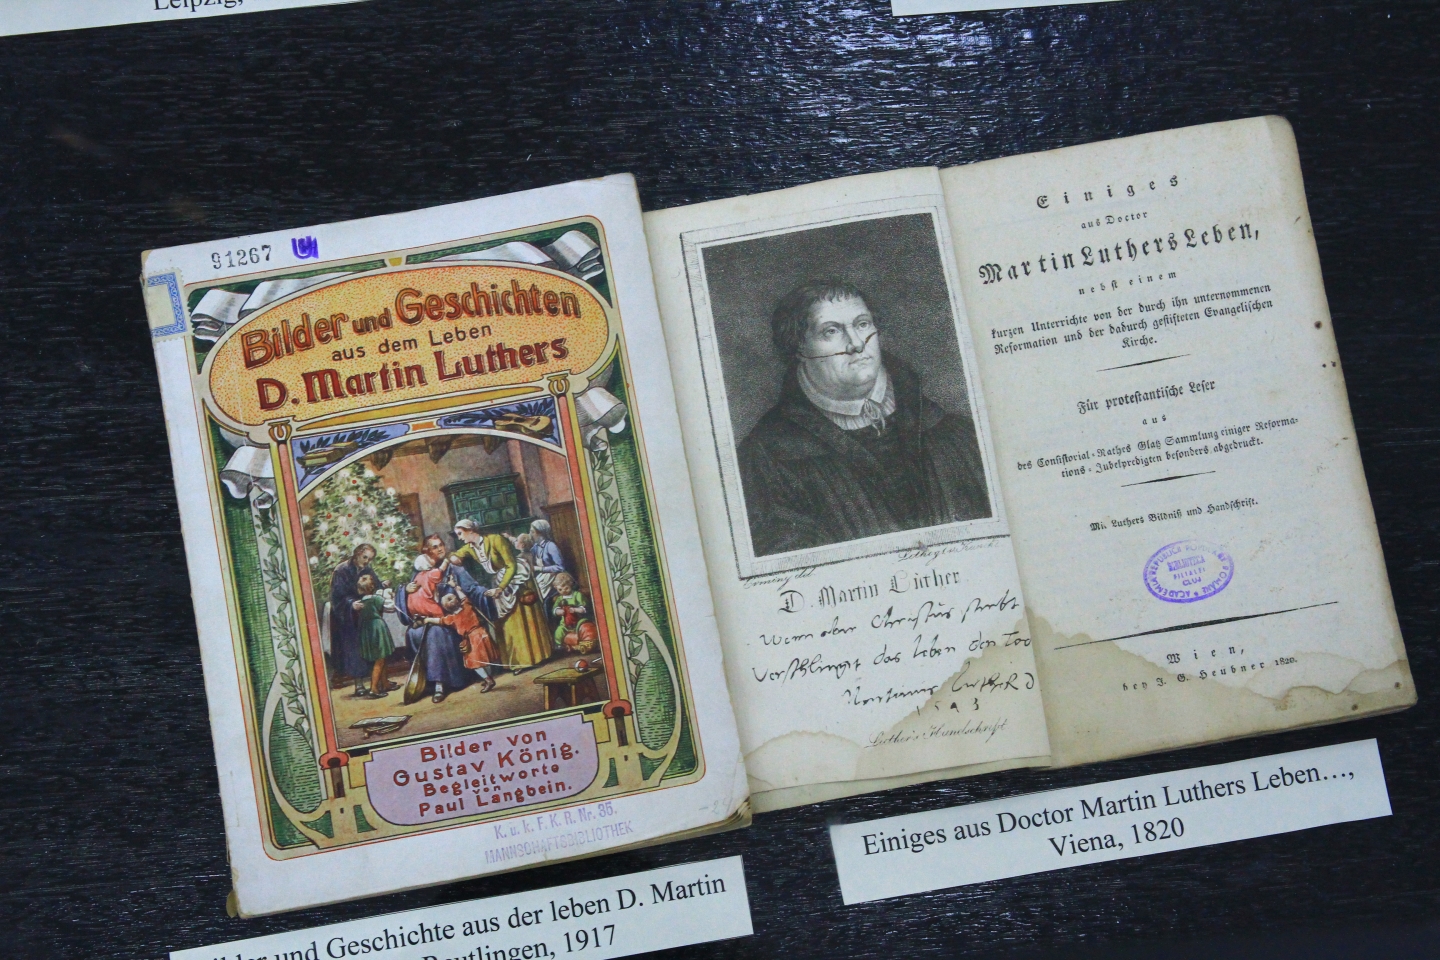 Leipzig,
91267
Bilder und Geschichten
aus dem Leben
D. Martin Luthers
Bilder von
Gustav König.
Begleitworte
von
Paul Langbein.
K. u. k. F. K. R. Nr. 35.
MANNSCHAFTSBIBLIOTHEK
und Geschichte aus der leben D. Martin
Reutlingen, 1917
D. Martin Luther
Wenn aber Christus
verschlingt das leben den Tod
Martinus LutheR D
Luther's Handschrift
Einiges
aus Doctor
Martin Luthers Leben,
nebst einem
kurzen Unterrichte von der durch ihn unternommenen
Reformation und der dadurch gestifteten Evangelischen
Kirche.
Für protestantische Leser
aus
des Consistorial-Rathes Glatz Sammlung einiger Reforma-
tions-Jubelpredigten besonders abgedruckt.
Mit Luthers Bildniß und Handschrift.
BIBLIOTECA
FILIALEI
CLUJ
Wien,
bey J. G. Heubner 1820.
Einiges aus Doctor Martin Luthers Leben…,
Viena, 1820